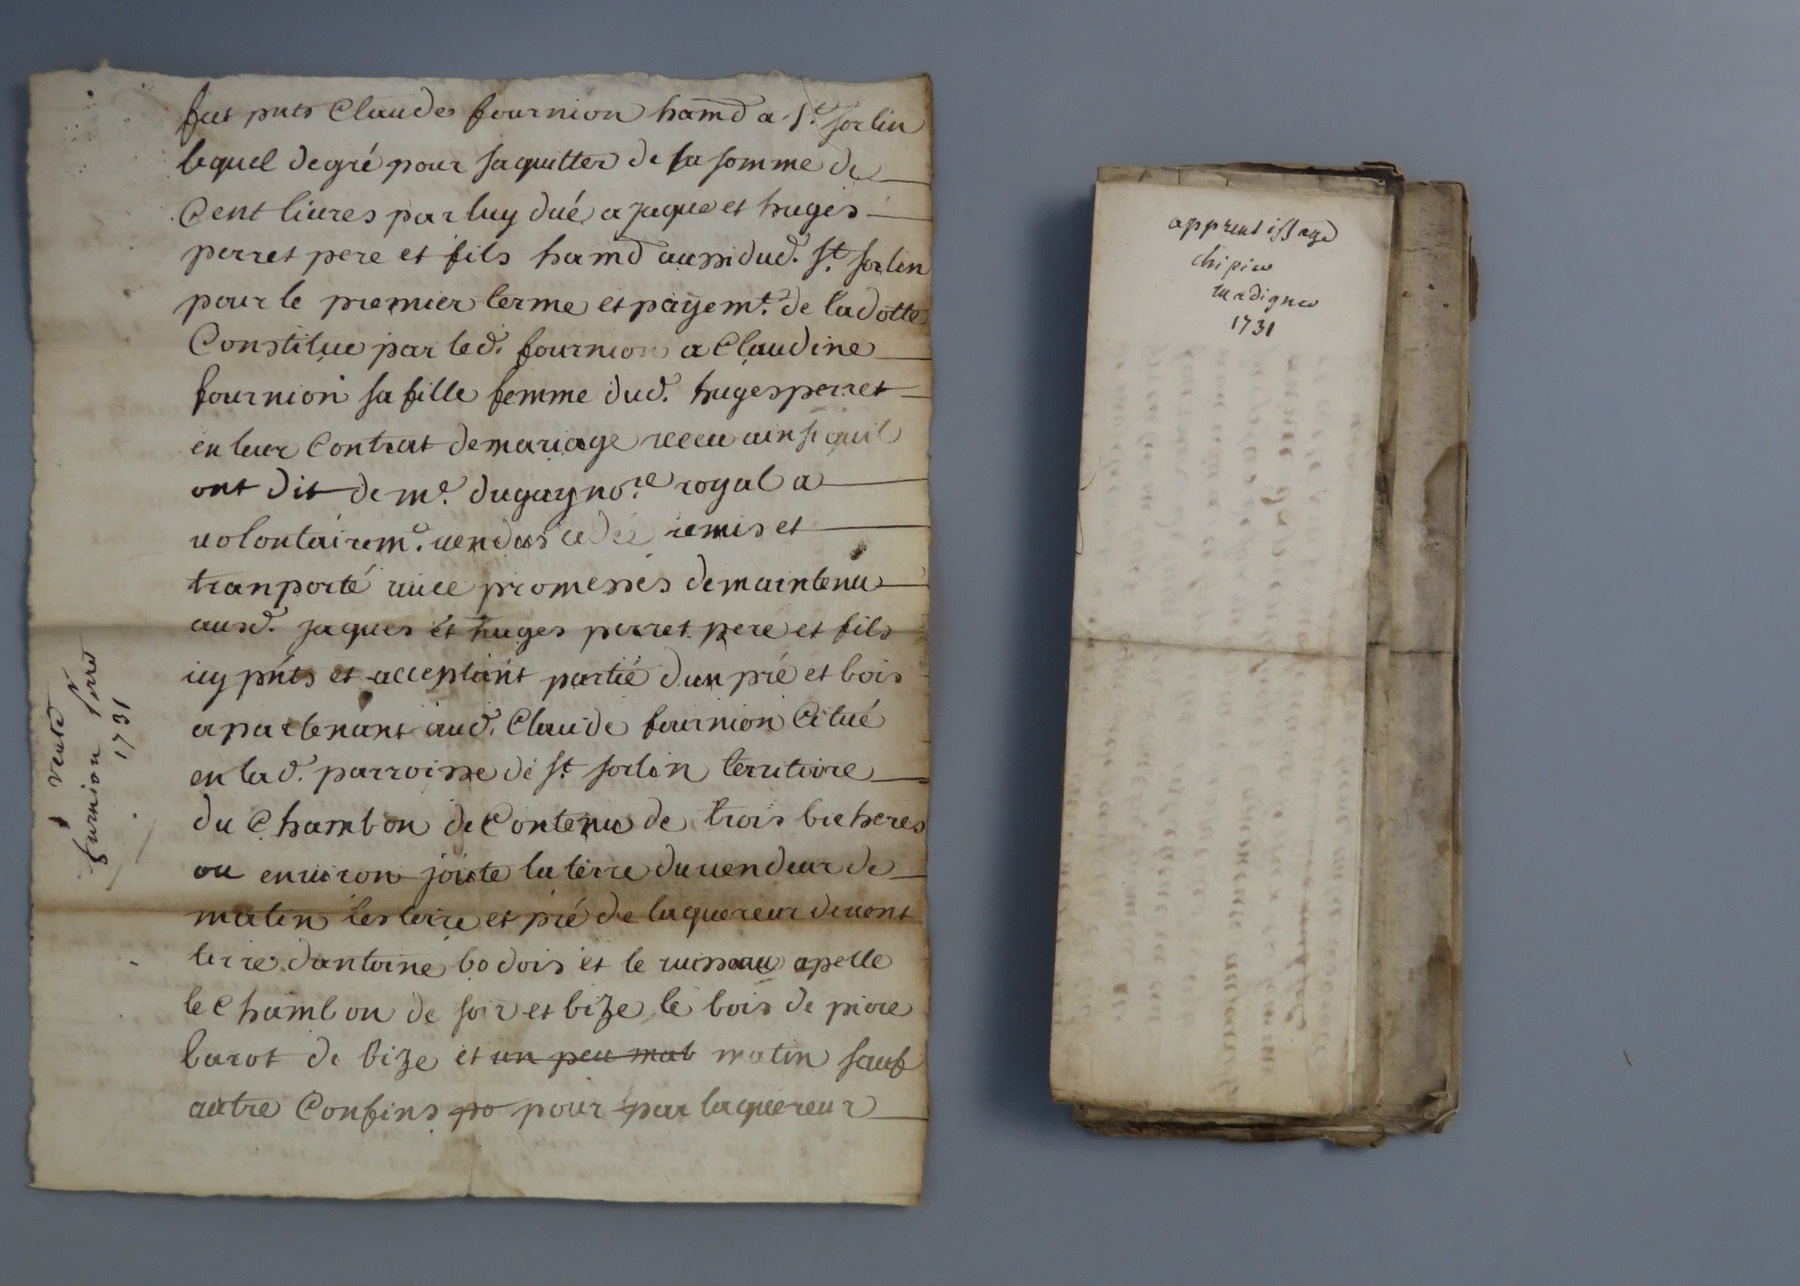 fut pnts Claude fournion hamd a St sorlin
lequel degré pour saquitter de la somme de
Cent liures par luy dué a jaque et huges
perret pere et fils hamd aussi dud. St. sorlin
pour le premier terme et payemt. de la dotte
Constitue par led. fournion a Claudine
fournion sa fille femme dud. huges perret
en leur Contrat de mariage receu ainsi quil
ont dit de me. dugay nore. royal a
volontairemt. uendus cedée remis et
tranporté auec promesses de maintenu
ausd. jaques et huges perret pere et fils
icy pnts et acceptant partié dun pré et bois
apartenant aud. Claude fournion Citué
en lad. parroisse de St sorlin territoire
du Chambon de Contenu de trois bicheres
ou enuiron joute la terre du uendeur de
matin les terre et pré de laquereur de uent
terre dantoine bodois et le ruisseau apelle
le Chambon de soir et bize le bois de piere
barot de bize et un peu mat matin sauf
autre Confins po pour par laquereur
vente
furnion perret
1731
apprentissage
chipier
madignier
1731